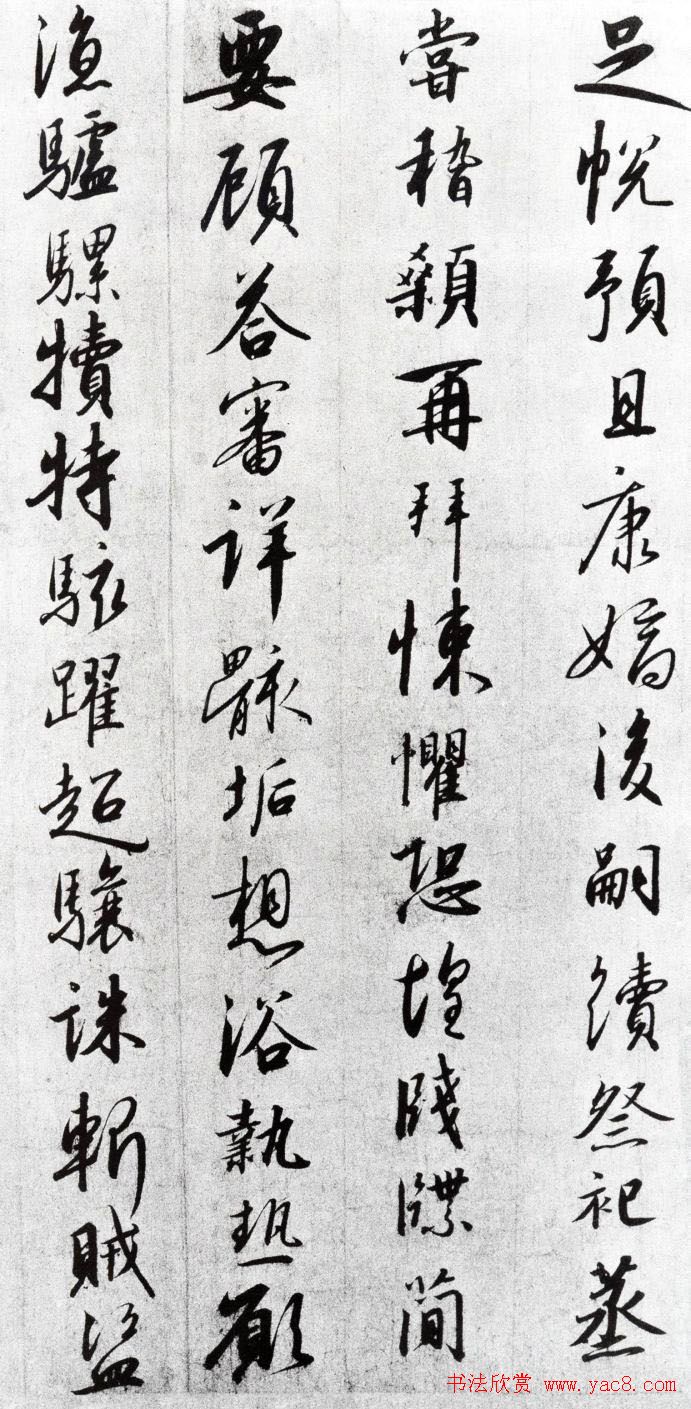 足悅預且康嫡後嗣續祭祀蒸
嘗稽顙再拜悚懼恐惶牋牒簡
要顧答審詳骸垢想浴執熱願
涼驢騾犢特駭躍超驤誅斬賊盜
书法欣赏 www.yac8.com